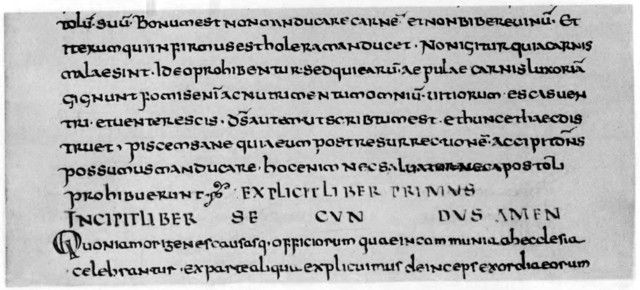 tolū suū · Bonum est non manducare carnē et non bibere uinū · Et
iterum qui infirmus est holera manducet · Non igitur quia carnis
malae sint · Ideo prohibentur · sed qui earū aepulae carnis luxoriā
gignunt fomis enī ac nutrimentum omniū uitiorum · escas uen
tri · et uenter escis · d̄s autem ut scribtum est · et hunc et haec dis
truet , piscem sane quia eum post resurrectionē · accipit dn̄s
possumus manducare · hoc enim nec saluator nec apostoli
prohibuerunt · EXPLICIT LIBER PRIMUS
INCIPIT LIBER SE CUN DUS AMEN
Quoniam origenes causasq · officiorum quae in communi ab ecclesia
celebrantur · ex parte aliqua explicuimus deinceps exordia eorum